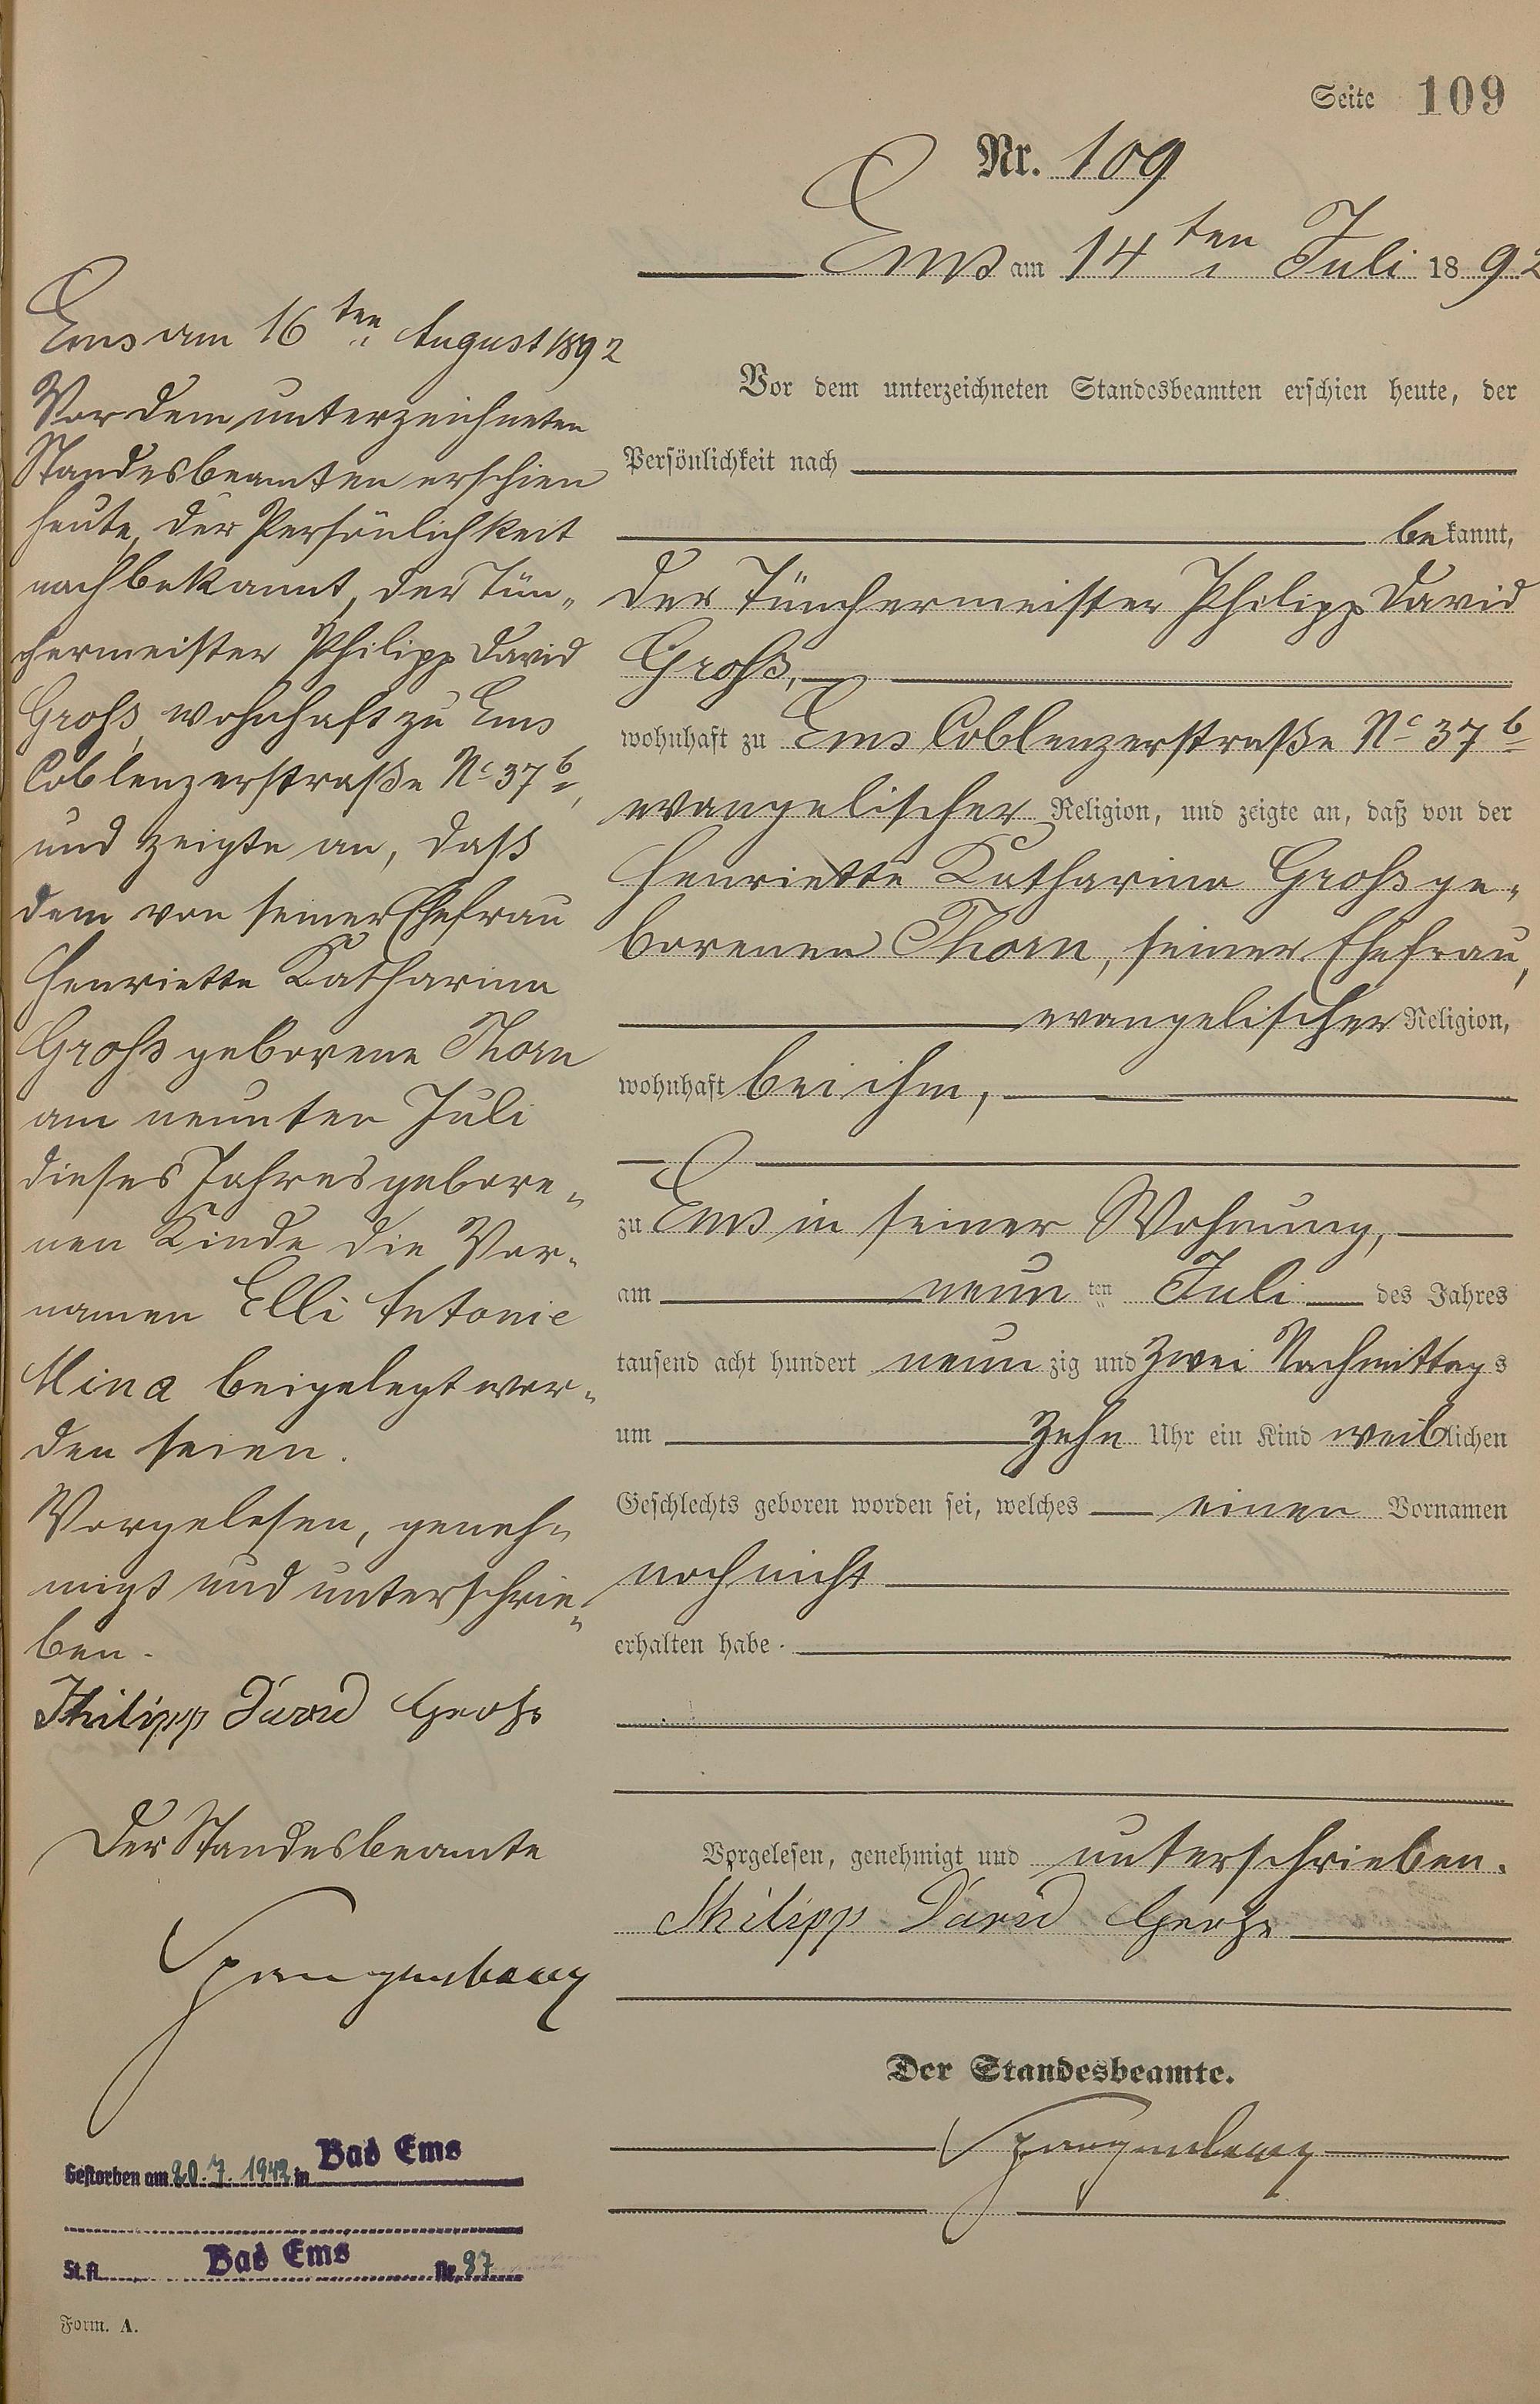 Seite 109
Nr. 109
Ems am 14ten Juli 1892
Vor dem unterzeichneten Standesbeamten erschien heute, der
Persönlichkeit nach
bekannt,
der Tünchermeister Philipp David
Groß,
wohnhaft zu Ems Coblenzerstraße No 37b
evangelischer Religion, und zeigte an, daß von der
Henriette Katharina Groß ge-
borenen Thorn, seiner Ehefrau,
evangelischer Religion,
wohnhaft bei ihm,
zu Ems in seiner Wohnung,
am neun ten Juli des Jahres
tausend acht hundert neunzig und zwei Nachmittags
um zehn Uhr ein Kind weiblichen
Geschlechts geboren worden sei, welches einen Vornamen
noch nicht
erhalten habe.
Vorgelesen, genehmigt und unterschrieben.
Philipp David Groß
Der Standesbeamte.
Ems am 16ten August 1892
Vor dem unterzeichneten
Standesbeamten erschien
heute, der Persönlichkeit
nach bekannt, der Tün-
chermeister Philipp David
Groß, wohnhaft zu Ems
Coblenzerstraße No 37b,
und zeigte an, daß
dem von seiner Ehefrau
Henriette Katharina
Groß geborene Thorn
am neunten Juli
dieses Jahres gebore-
nen Kinde die Vor-
namen Elli Antonie
Mina beigelegt wor-
den seien.
Vorgelesen, geneh-
migt und unterschrie-
ben.
Philipp David Groß
Der Standesbeamte
Gestorben am 20.7.1942 in Bad Ems
St.A. Bad Ems Nr. 87
Form. A.